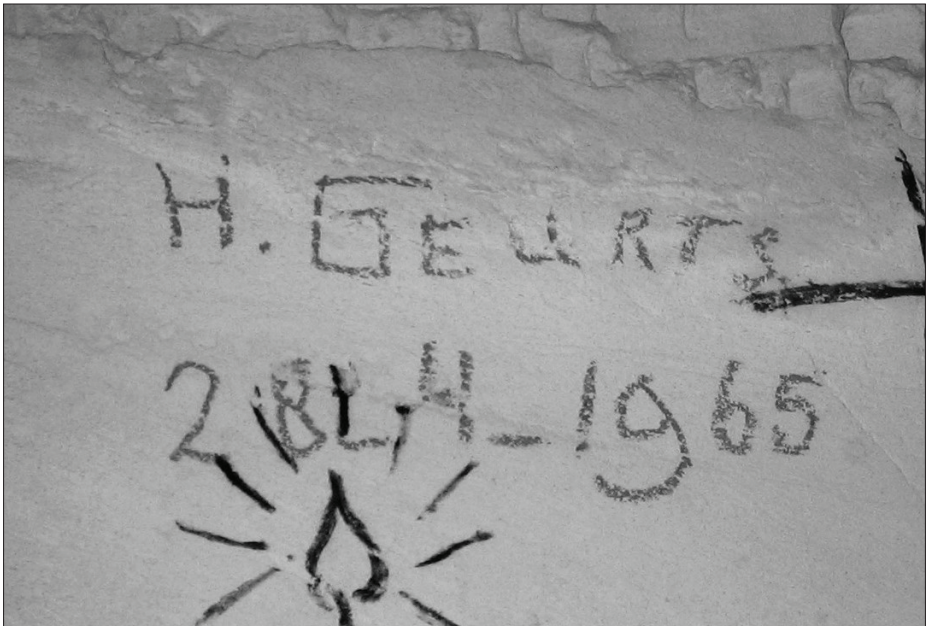 H. GEURTS
28-4-1965